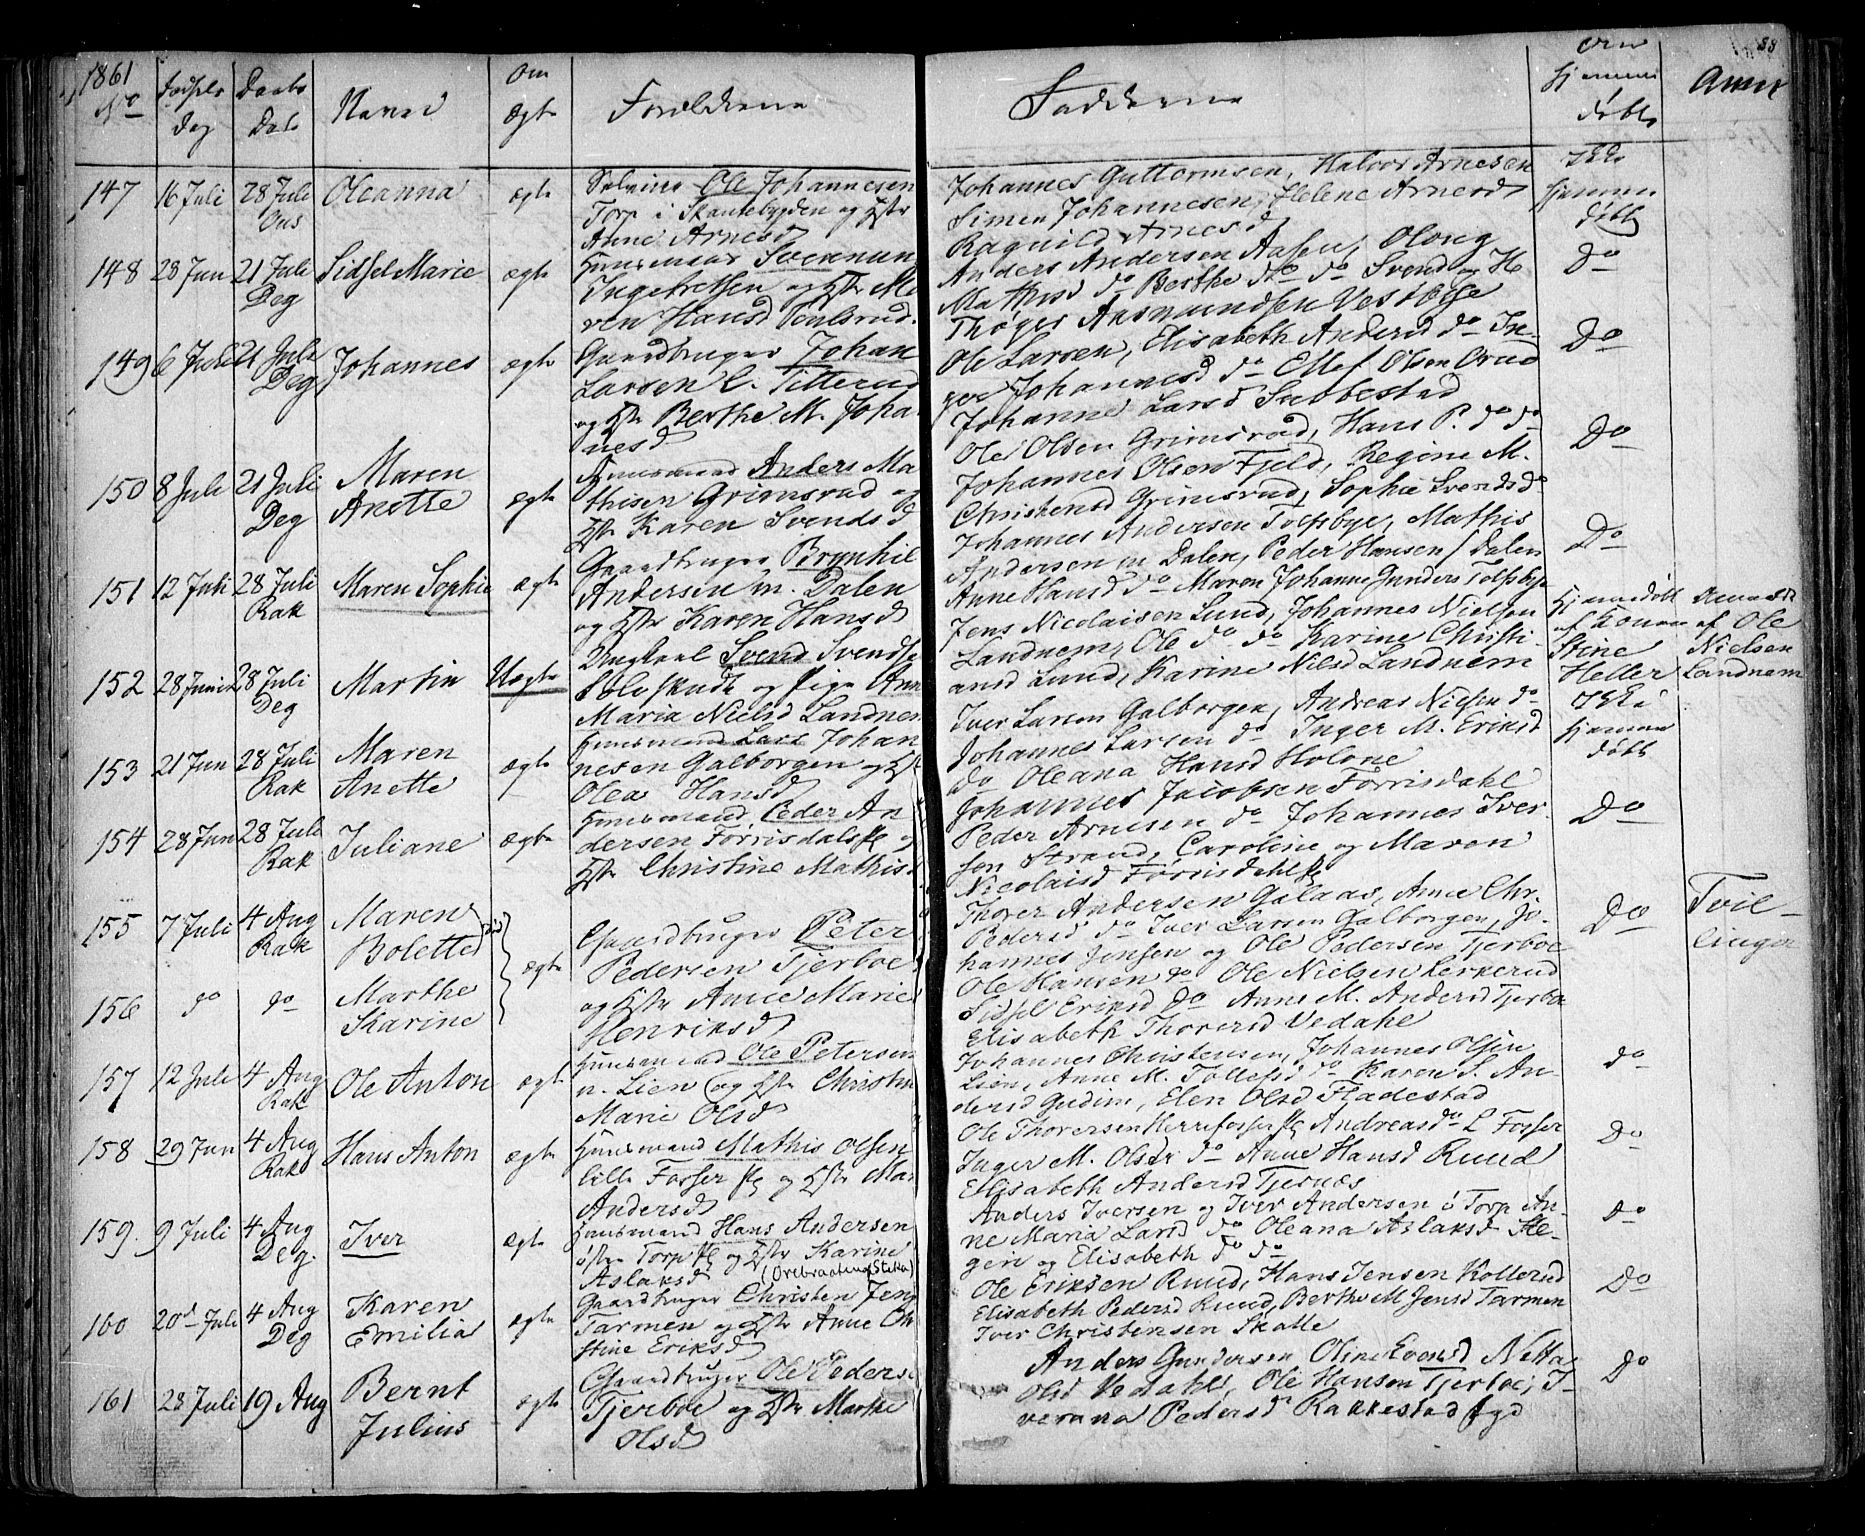 1861
No
Fødsels
dag
Daabs
Dato
Navn
Om
Ægte
Forældrene
Fadderne
Om
hjemme
døbt
Anm
88
147 16 Juli 28 Juli Oleanna ægte
Ous
Ole Johannesen
Torp i Skautebygden og Hstr
Anne Arnesd
Johannes Guttormsen, Halvor Arnesen
Simen Johannesen, Helene Arnesd
Ragnild Arnesd
Ikke
hjemme
døbt
148 28 Jun 21 Juli Sidsel Marie ægte
Deg
Huusmand Svennun
Ingebretsen og Hstr Ma
ren Hansd Poulsrud
Anders Andersen Aasen, Olong
Mathisd do Berthe do do Svend og H
Thøger Aasmundsen Vestbøe
Do
149 6 Juli 21 Juli Johannes ægte
Deg
Gaardbruger Johan
Larsen l. Titterud
og Hstr Berthe M. Joha
nesd
Ole Larsen, Elisabeth Andersd do In-
ger Johannesd do Ellef Olsen Orud
Johanne Larsd Subbestad
Do
150 8 Juli 21 Juli Maren
Deg
Anette ægte
Huusmand Anders Ma
thisen Grimsrud og
Hstr Karen Svendsd
Ole Olsen Grimsrud, Hans P. do do
Johannes Olsen Fjeld, Regine M.
Christensd Grimsrud, Sophie Svendsd
Do
151 12 Juli 28 Juli Maren Sophie ægte
Rak
Gaardbruger Brynhil
Andersen m. Dalen
og Hstr Karen Hansd
Johannes Andersen Tolfsbye, Mathis
Andersen m Dalen, Peder Hansen Dalen
Anne Hansd do Maren Johanne Gunders Tolfsbye
Do
152 28 Juni 28 Juli Martin Uægte
Deg
Ungkarl Svend Svends
Solvskudt og Pige Ann
Maria Nielsd Landnem
Jens Nicolaisen Lund, Johannes Nielsen
Landnem, Ole do do Karine Christi
ansd Lund, Karine Nilsd Landnem
Hjemmedøbt
af Konen
Stine
Heller
Anmeldt
af Ole
Nielsen
Landnem
153 21 Jun 28 Juli Maren
Rak
Anette ægte
Huusmand Lars Johan
nesen Galborgen og Hstr
Olea Hansd
Iver Larsen Galborgen, Andreas Nielsen do
Johannes Larsen do Inger M. Eriksd
do Oleana Hansd Holone
Ikke
hjemme
døbt
154 28 Jun 28 Juli Juliane ægte
Rak
Huusmand Peder An
dersen Førrisdalsk og
Hstr Christine Mathisd
Johannes Jacobsen Førrisdahl
Peder Arnesen do Johannes Iver
sen Strand, Caroline og Maren
Nicolaisd Førrisdahl
Do
155 7 Juli 4 Aug Maren
Rak
Bolette
død
156 do do Marthe
Karine
ægte
Gaardbruger Peter
Pedersen Tjerboe
og Hstr Anne Marie
Henriksd
Thorer Andersen Galaas, Anne Chr.
Pedersd do Iver Larsen Galborgen, Jo-
hannes Jensen og Ole Pedersen Tjerboe
Ole Hansen do Ole Nielsen Lerkerud
Sidsel Eriksd Do Anne M. Andersd Tjerboe
Elisabeth Thorersd Vedahl
Do
Tvil-
linger
157 12 Juli 4 Aug Ole Anton ægte
Rak
Huusmand Ole Petersen
n. Lien og Hstr Christin
Marie Olsd
Johannes Christensen, Johannes Olsen
Lien, Anne M. Tollefsd do Karen S. An-
dersd Gudim, Elen Olsd Fladestad
do
158 29 Jun 4 Aug Hans Anton ægte
Rak
Huusmand Mathis Olsen
lille Forser og Hstr Mar
Andersd
Ole Thoresen Herreforser Andreas do L Forser
Inger M. Olsd do Anne Hansd Ruud
Elisabeth Andersd Tjernæs
Do
159. 9 Juli 4 Aug Iver ægte
Deg.
Huusmand Hans Andersen
østre Torp og Hstr Karine
Aslaksd
(Orebraaten Stekn)
Anders Iversen og Iver Andersen ø Torp An-
ne Maria Larsd do Oleana Aslaksd Ste-
gen og Elisabeth do do
Do
160 20d Juli 4 Aug Karen
Deg
Emilia ægte
Gaardbruger Christen Jens
Tarmen og Hstr Anne Ch
stine Eriksd
Ole Eriksen Ruud, Hans Jensen Kollerud
Elisabeth Pedersd Ruud, Berthe M Jensd Tarmen
Iver Christensen Skolle
Do
161 28 Juli 19 Aug Bernt
Julius ægte
Gaardbruger Ole Peders
Tjerboe og Hstr Marthe
Olsd
Anders Gundersen Oline Evensd Netta
Olsd Vedahl, Ole Hansen Tjerboe, I-
verana Pedersd Rakkestad
Do